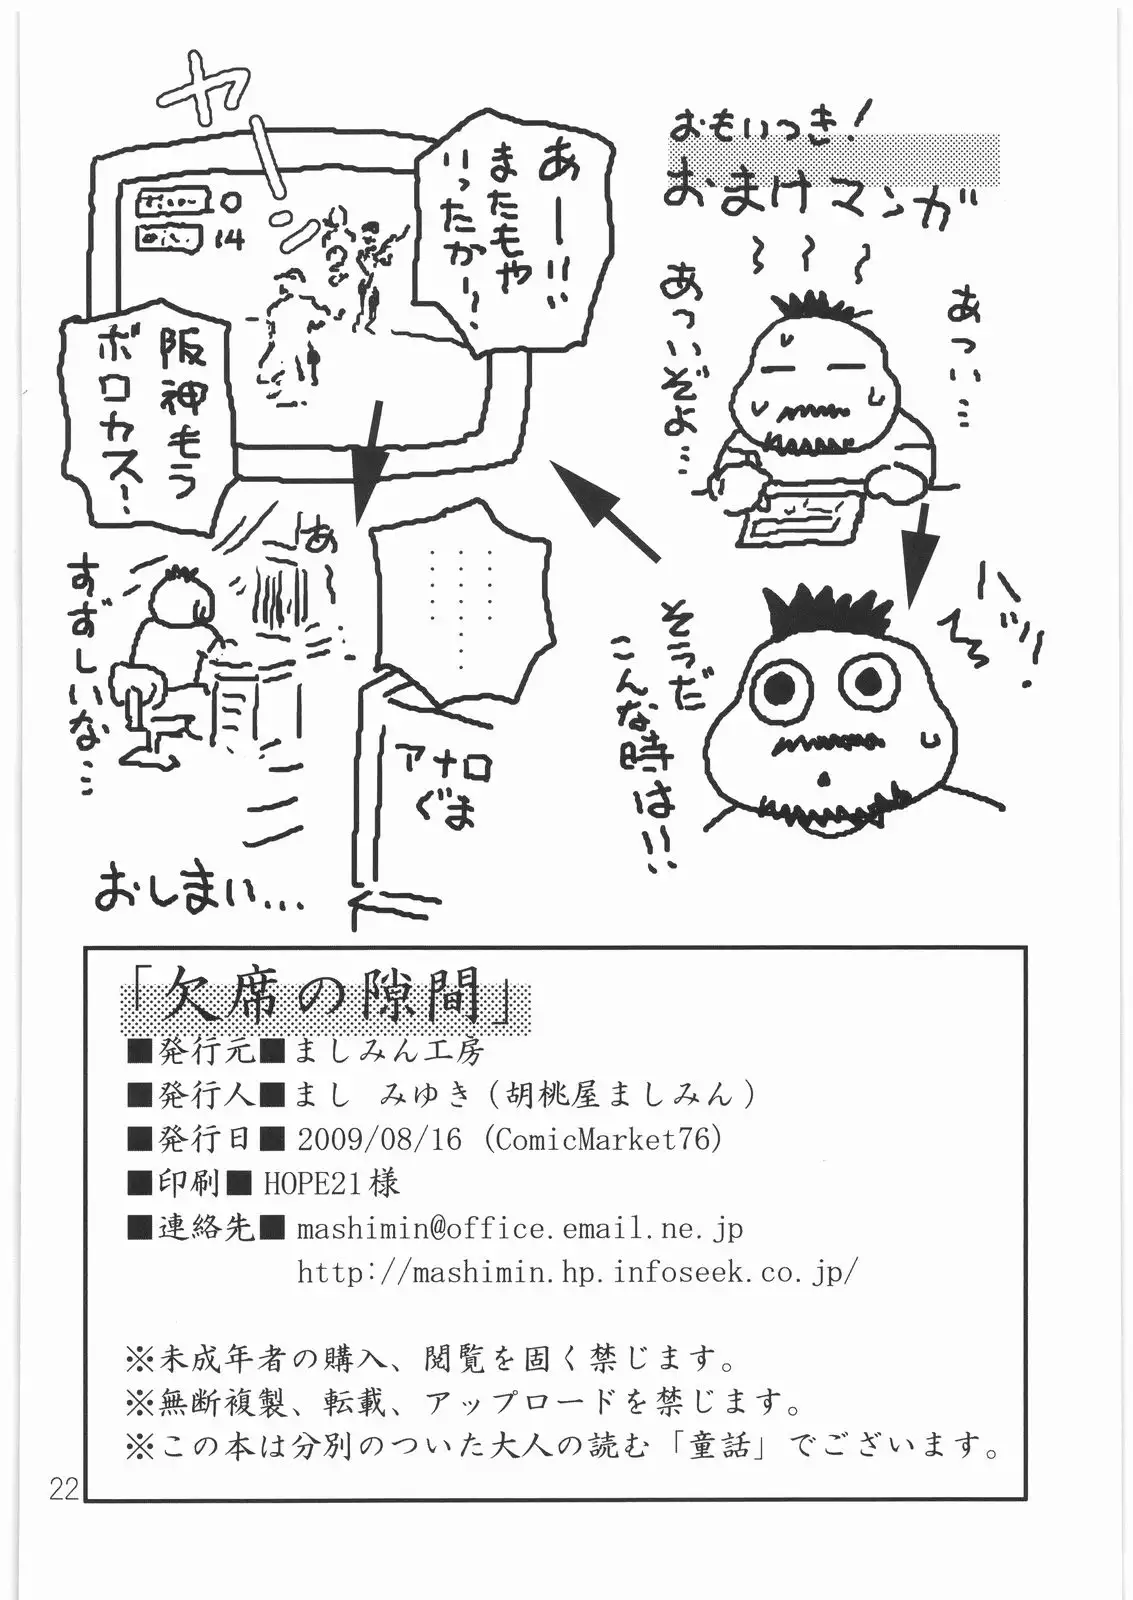 おもいつき!
おまけマンガ
あつい…
あついぞよ…
ハッ!
そうだ
こんな時は!!
ヤ
あーー!!
またもや
いったかー!
0
14
阪神もう
ボロカス!
あ〜
すずしいな…
アナロ
ぐま
おしまい...
「欠席の隙間」
■発行元■ましみん工房
■発行人■まし みゆき(胡桃屋ましみん)
■発行日■ 2009/08/16 (ComicMarket76)
■印刷■ HOPE21様
■連絡先■ mashimin@office.email.ne.jp
http://mashimin.hp.infoseek.co.jp/
※未成年者の購入、閲覧を固く禁じます。
※無断複製、転載、アップロードを禁じます。
※この本は分別のついた大人の読む「童話」でございます。
22